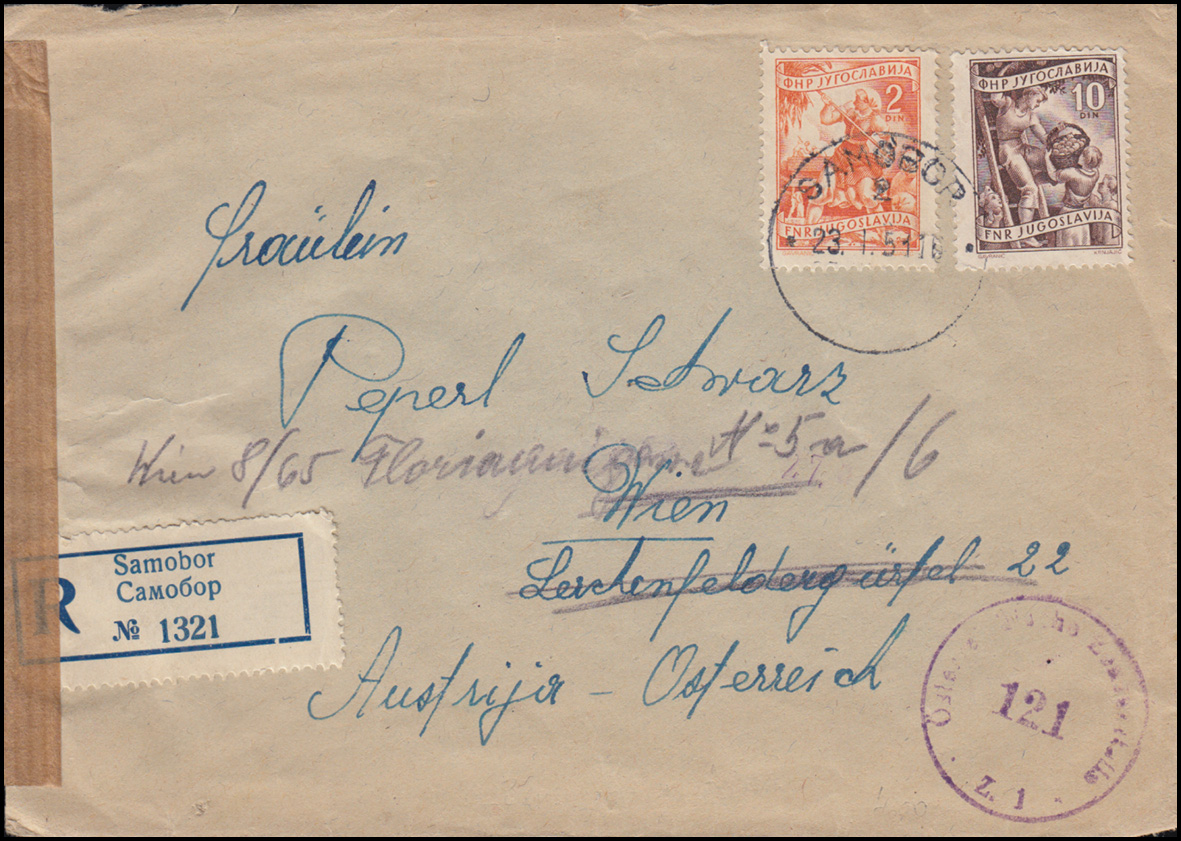 ФНР ЈУГОСЛАВИЈА
2
DIN
FNR JUGOSLAVIJA
ФНР ЈУГОСЛАВИЈА
10
DIN
FNR JUGOSLAVIJA
SAMOBOR
2
23. I. 51 18
Fraülein
Peperl Schwarz
Wien 8/65 Florianigasse № 5a/6
Wien
Lerchenfeldergürtel 22
Austrija - Österreich
R
Samobor
Самобор
№ 1321
Österreichische Zensurstelle
121
Z. 1